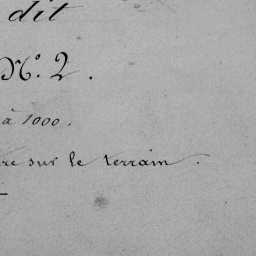 dit
N°. 2.
à 1000.
re sur le terrain.